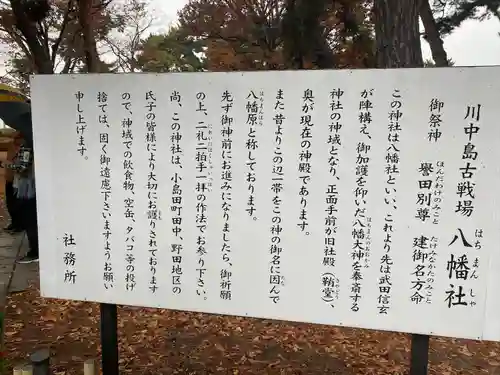 川中島古戦場 八幡社
はちまんしゃ
御祭神 誉田別尊 建御名方命
ほんだわけのみこと たけみなかたのみこと
この神社は八幡社といい、これより先は武田信玄
が陣構え、御加護を仰いだ八幡大神を奉斎する
はちまんのおおかみ
神社の神域となり、正面手前が旧社殿（鞘堂）、
さやどう
奥が現在の神殿であります。
また昔よりこの辺一帯をこの神の御名に因んで
ちな
八幡原と称しております。
はちまんはら
先ず御神前にお進みになりましたら、御祈願
の上、二礼二拍手一拝の作法でお参り下さい。
尚、この神社は、小島田町田中、野田地区の
氏子の皆様により大切にお護りされております
ので、神域での飲食物、空缶、タバコ等の投げ
捨ては、固く御遠慮下さいますようお願い
申し上げます。
社務所